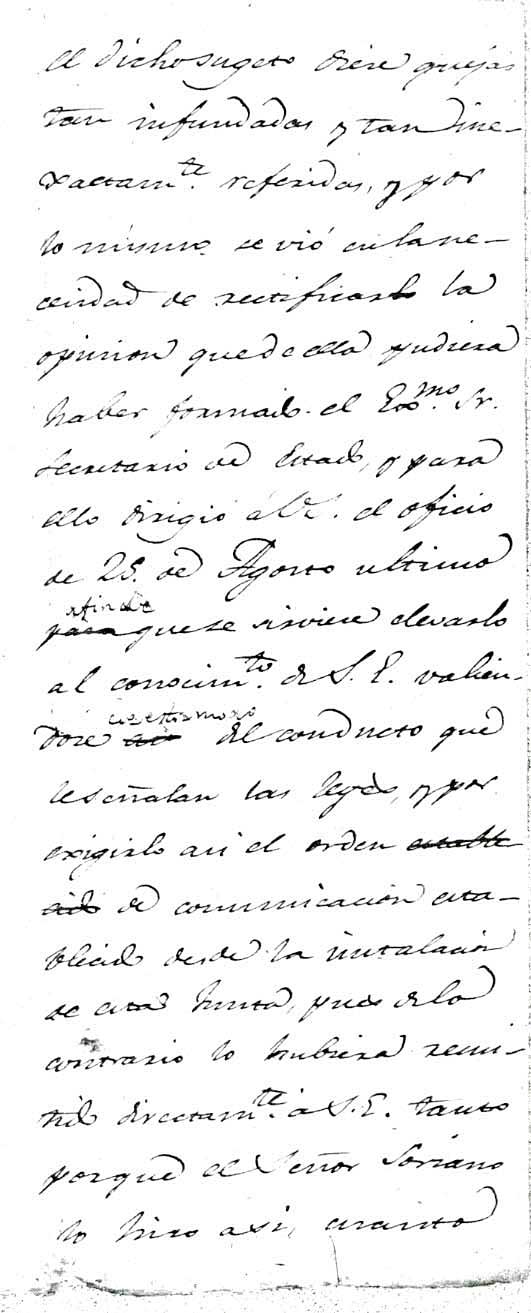 el dicho sugeto diese quejas
tan infundadas y tan ine-
xactam.te referidas, y por
lo mismo se vió en la ne-
cesidad de rectificar la
opinion que de ella pudiera
haber formado el Exmo. Sr.
Secretario de Estado, y para
ello dirigió á V. el oficio
de 25. de Agosto ultimo
afin de
para que se sirviese elevarlo
al conocim.to de S. E. valien-
en estos mo
dose así del conducto que
le señalan las leyes, y por
exigirlo asi el orden estable
cido de comunicacion esta-
blecido desde la instalacion
de esta Junta, pues de lo
contrario lo hubiera remi-
tido directam.te á S. E. tanto
porque el Señor Soriano
lo hizo asi, cuanto